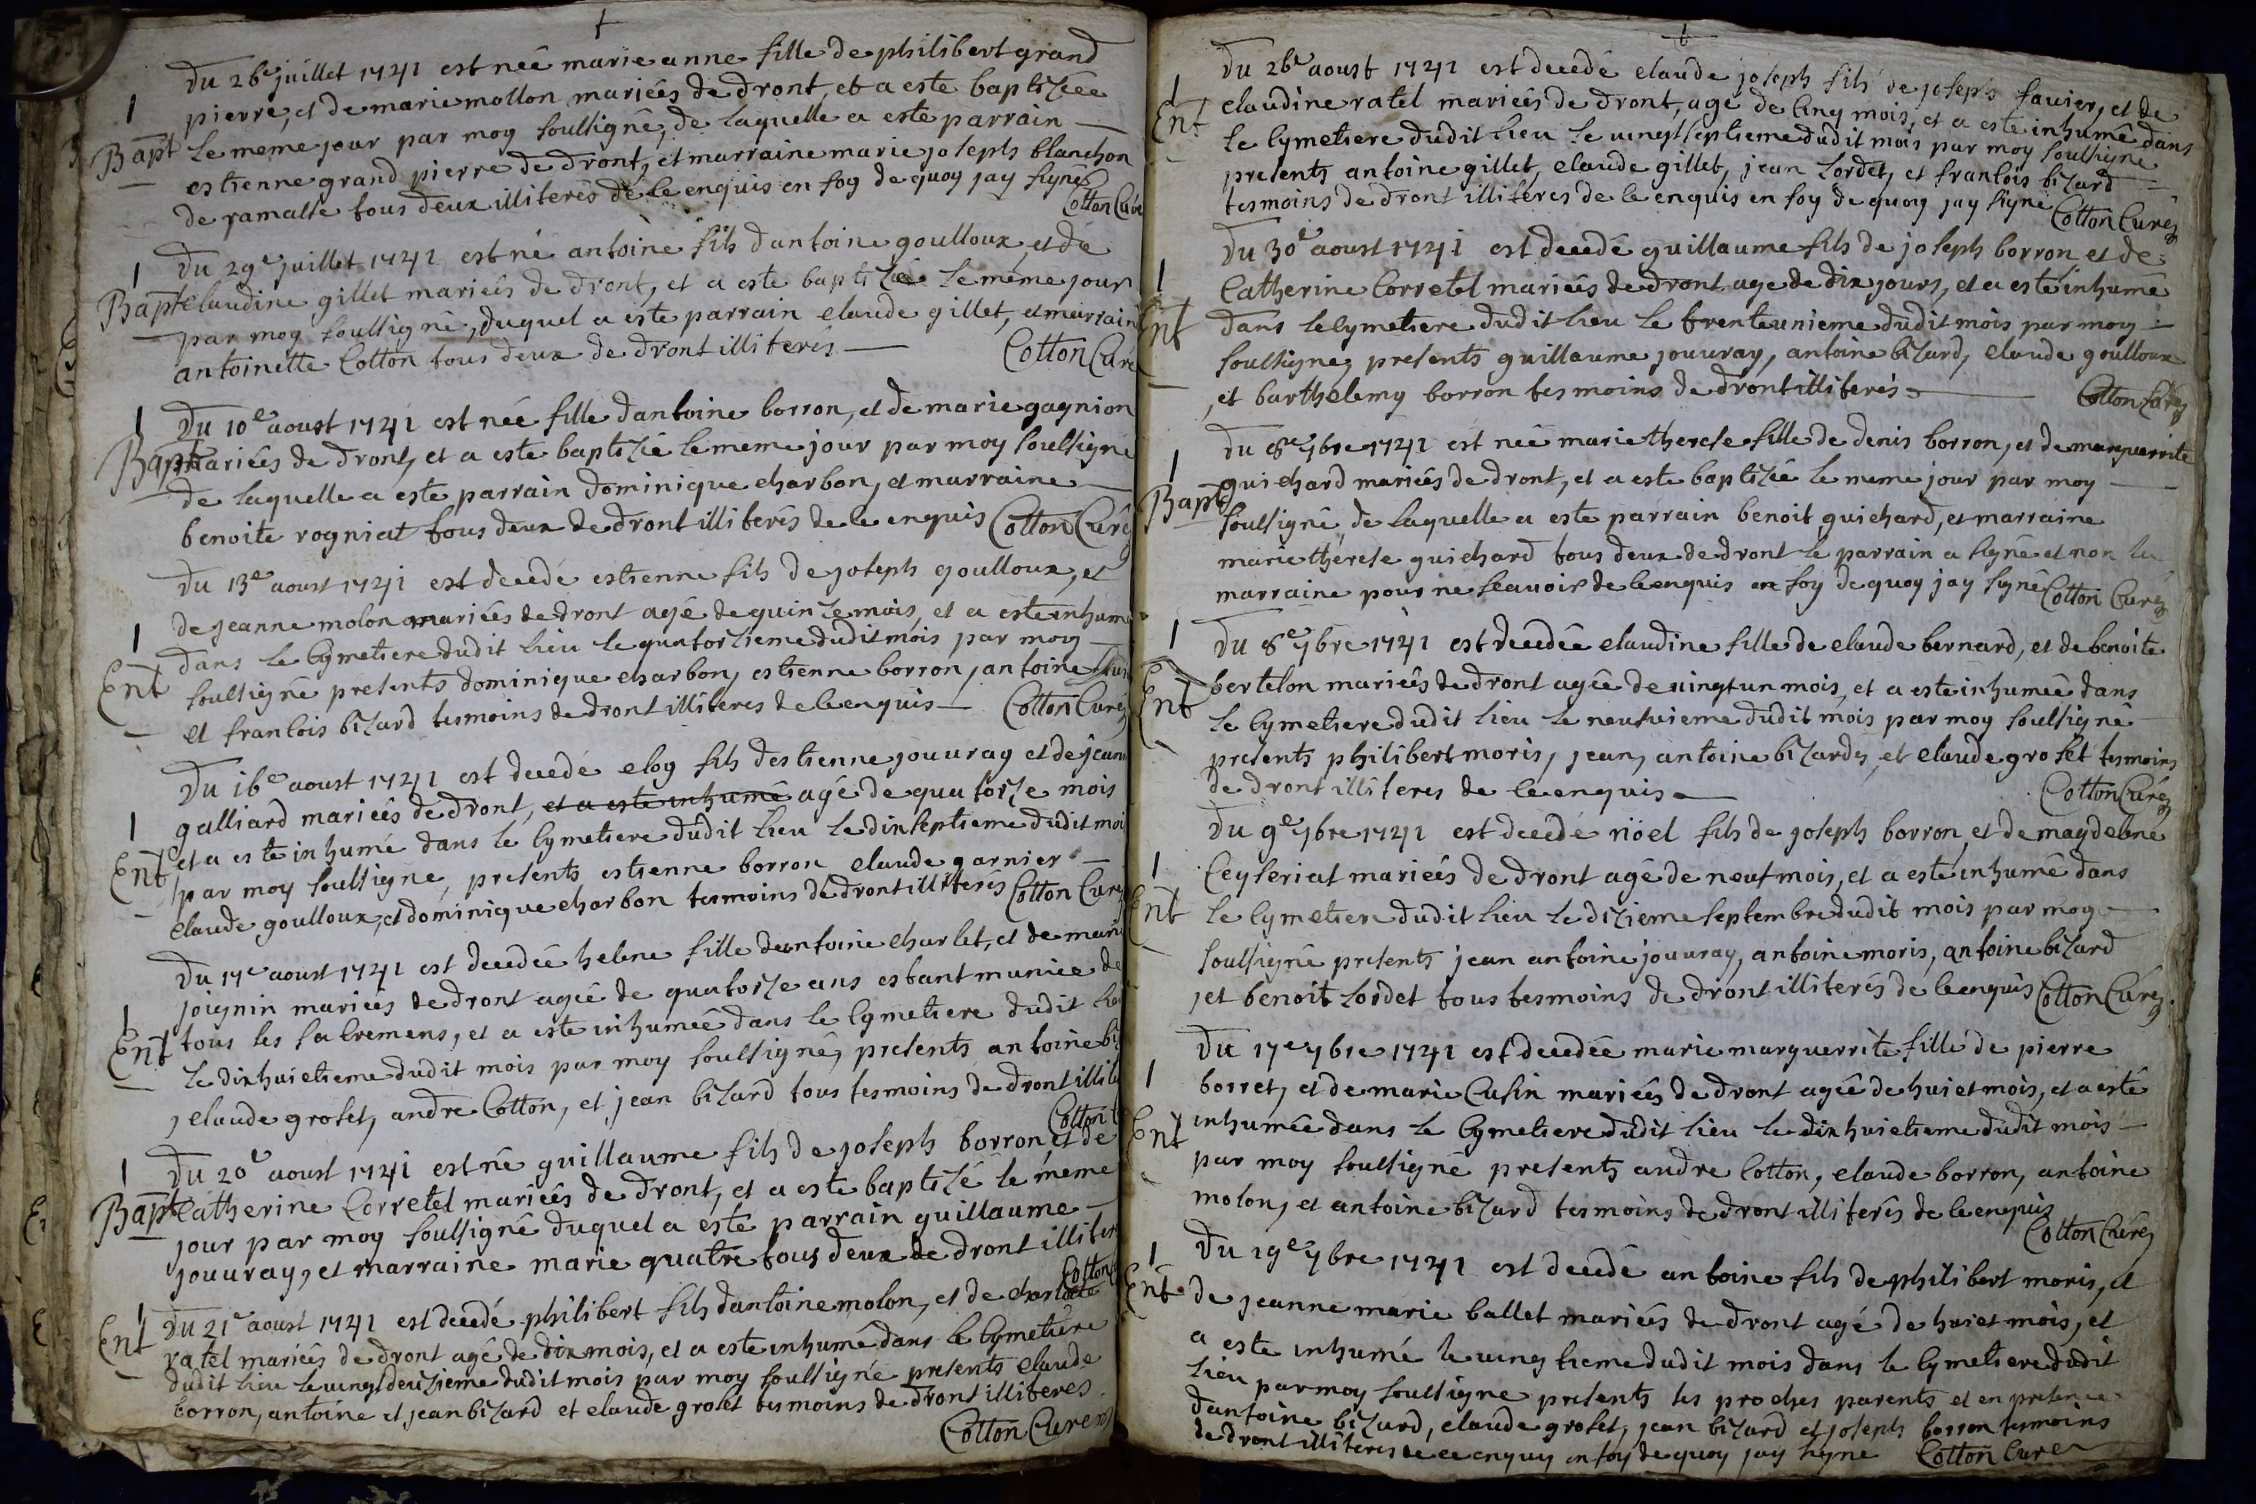 Du 26e juillet 1741 est neê marie anne fille de philibert grand
pierre, et de marie mollon mariées de dront, et a este baptizée
1
Bapt le meme jour par moy soussignê, de laquelle a este parrain
estienne grand pierre de dront, et marraine marie joseph blanchon
de ramasse tous deux illiterés de ce enquis en foy de quoy jay signé
Cotton Curé
Du 29e juillet 1741 est né antoine fils dantoine goulloux, et de
1
Bapt claudine gillet marieés de dront, et a este baptizé le même jour
par moy soussigné, duquel a este parrain claude gillet, et marraine
antoinette Cotton tous deux de dront illiterés
Cotton Curé
1
Du 10e aoust 1741 est née fille dantoine borron, et de marie gagnion
Bapt mariées de dront, et a este baptizée le meme jour par moy soussigné
de laquelle a este parrain dominique charbon, et marraine
benoite rogniat tous deux de dront illiterés de ce enquis Cotton Curé
Du 13e aoust 1741 est decedé estienne fils de joseph goulloux, et
de jeanne molon mariées de dront agé de quinze mois, et a este inhumé
1
Ent dans le cymetiere dudit lieu le quatorzieme dudit mois par moy
soussigné presents dominique charbon, estienne borron, antoine
et francois bizard tesmoins de dront illiteres de ce enquis Cotton Curé
Du 16e aoust 1741 est decedé eloy fils destienne jouvray et de jeanne
1
galliard marieés de dront, et a este inhumé agé de quatorze mois
Ent et a este inhumé dans le cymetiere dudit lieu le dixseptieme dudit mois
par moy soussigne, presents estienne borron claude garnier
claude goulloux, et dominique charbon tesmoins de dront illiterés Cotton Curé
Du 17e aoust 1741 est decedée helene fille dantoine charlet, et de marie
joignin marieés de dront agée de quatorze ans estant muniée de
1
Ent tous les sacremens, et a este inhumeê dans le cymetiere dudit lieu
le dixhuietieme dudit mois par moy soussigné, presents antoine
, claude groset, andre Cotton, et jean bizard tous tesmoins de dront
Cotton
1
Du 20e aoust 1741 est né guillaume fils de joseph borron et de
Bapt Catherine Corretel marieés de dront, et a este baptizé le meme
jour par moy soussigné duquel a este parrain guillaume
jouvray, et marraine marie quatre tous deux de dront
Cotton
1
Ent Du 21e aoust 1741 est decedé philibert fils dantoine molon, et de charlotte
ratel mariées de dront agé de dix mois, et a este inhumé dans le cymetiere
dudit lieu le vingt deuzieme dudit mois par moy soussigné presents claude
borron, antoine et jean bizard et claude groset tesmoins de dront illiteres
Cotton Curé
Du 26e aoust 1741 est decedé claude joseph fils de joseph favier, et de
1
Ent claudine ratel mariées de dront, agé de cinq mois, et a este inhumé dans
le cymetiere dudit lieu le vingt septieme dudit mois par moy soussigné
presents antoine gillet, claude gillet, jean Lordet, et francois bizard
tesmoins de dront illiteres de ce enquis en foy de quoy jay signé Cotton Curé
Du 30e aoust 1741 est decedé guillaume fils de joseph borron et de
1
Catherine Corretel mariées de dront agé de dix jours, et a este inhumé
Ent dans le cymetiere dudit lieu le trenteunieme dudit mois par moy
soussigné, presents guillaume jouvray, antoine bizard, claude goulloux
, et barthelemy borron tesmoins de dront illiterés Cotton Curé
Du 8e 7bre 1741 est neé marie therese fille de denis borron, et de marguerrite
1
guichard mariées de dront, et a este baptizée le meme jour par moy
Bapt soussigné, de laquelle a este parrain benoit guichard, et marraine
marie thérese guichard tous deux de dront le parrain a signé et non la
marraine pour ne scavoir de ce enquis en foy de quoy jay signé Cotton Curé
1
Du 8e 7bre 1741 est decedée claudine fille de claude bernard, et de benoite
Ent bertelon mariées de dront agée de vingt un mois, et a este inhumée dans
le cymetiere dudit lieu le neufvieme dudit mois par moy soussigné
presents philibert moris, jean, antoine bizards, et claude groset tesmoins
de dront illiteres de ce enquis
Cotton Curé
Du 9e 7bre 1741 est decedé nöel fils de joseph borron et de magdelene
1
Ceyseriat mariées de dront agé de neuf mois, et a este inhumé dans
Ent le cymetiere dudit lieu le dizieme septembre dudit mois par moy
soussigné presents jean antoine jouvray, antoine moris, antoine bizard
, et benoit Lordet tous tesmoins de dront illiterés de ce enquis Cotton Curé
Du 17e 7bre 1741 est decedée marie marguerrite fille de pierre
1
borret, et de marie Cusin mariées de dront agée de huiet mois, et a esté
Ent inhumée dans le cymetiere dudit lieu le dixhuietieme dudit mois
par moy soussigné presents andre Cotton, claude borron, antoine
molon, et antoine bizard tesmoins de dront illiterés de ce enquis
Cotton Curé
1
Du 19e 7bre 1741 est decedé antoine fils de philibert moris, et
Ent de jeanne marie ballet mariées de dront agé de huiet mois, et
a este inhumé le vingtieme dudit mois dans le cymetiere dudit
lieu par moy soussigne presents les proches parents et en presence
dantoine bizard, claude groset, jean bizard et joseph borron tesmoins
de dront illiteres de ce enquy en foy de quoy jay signe Cotton Curé